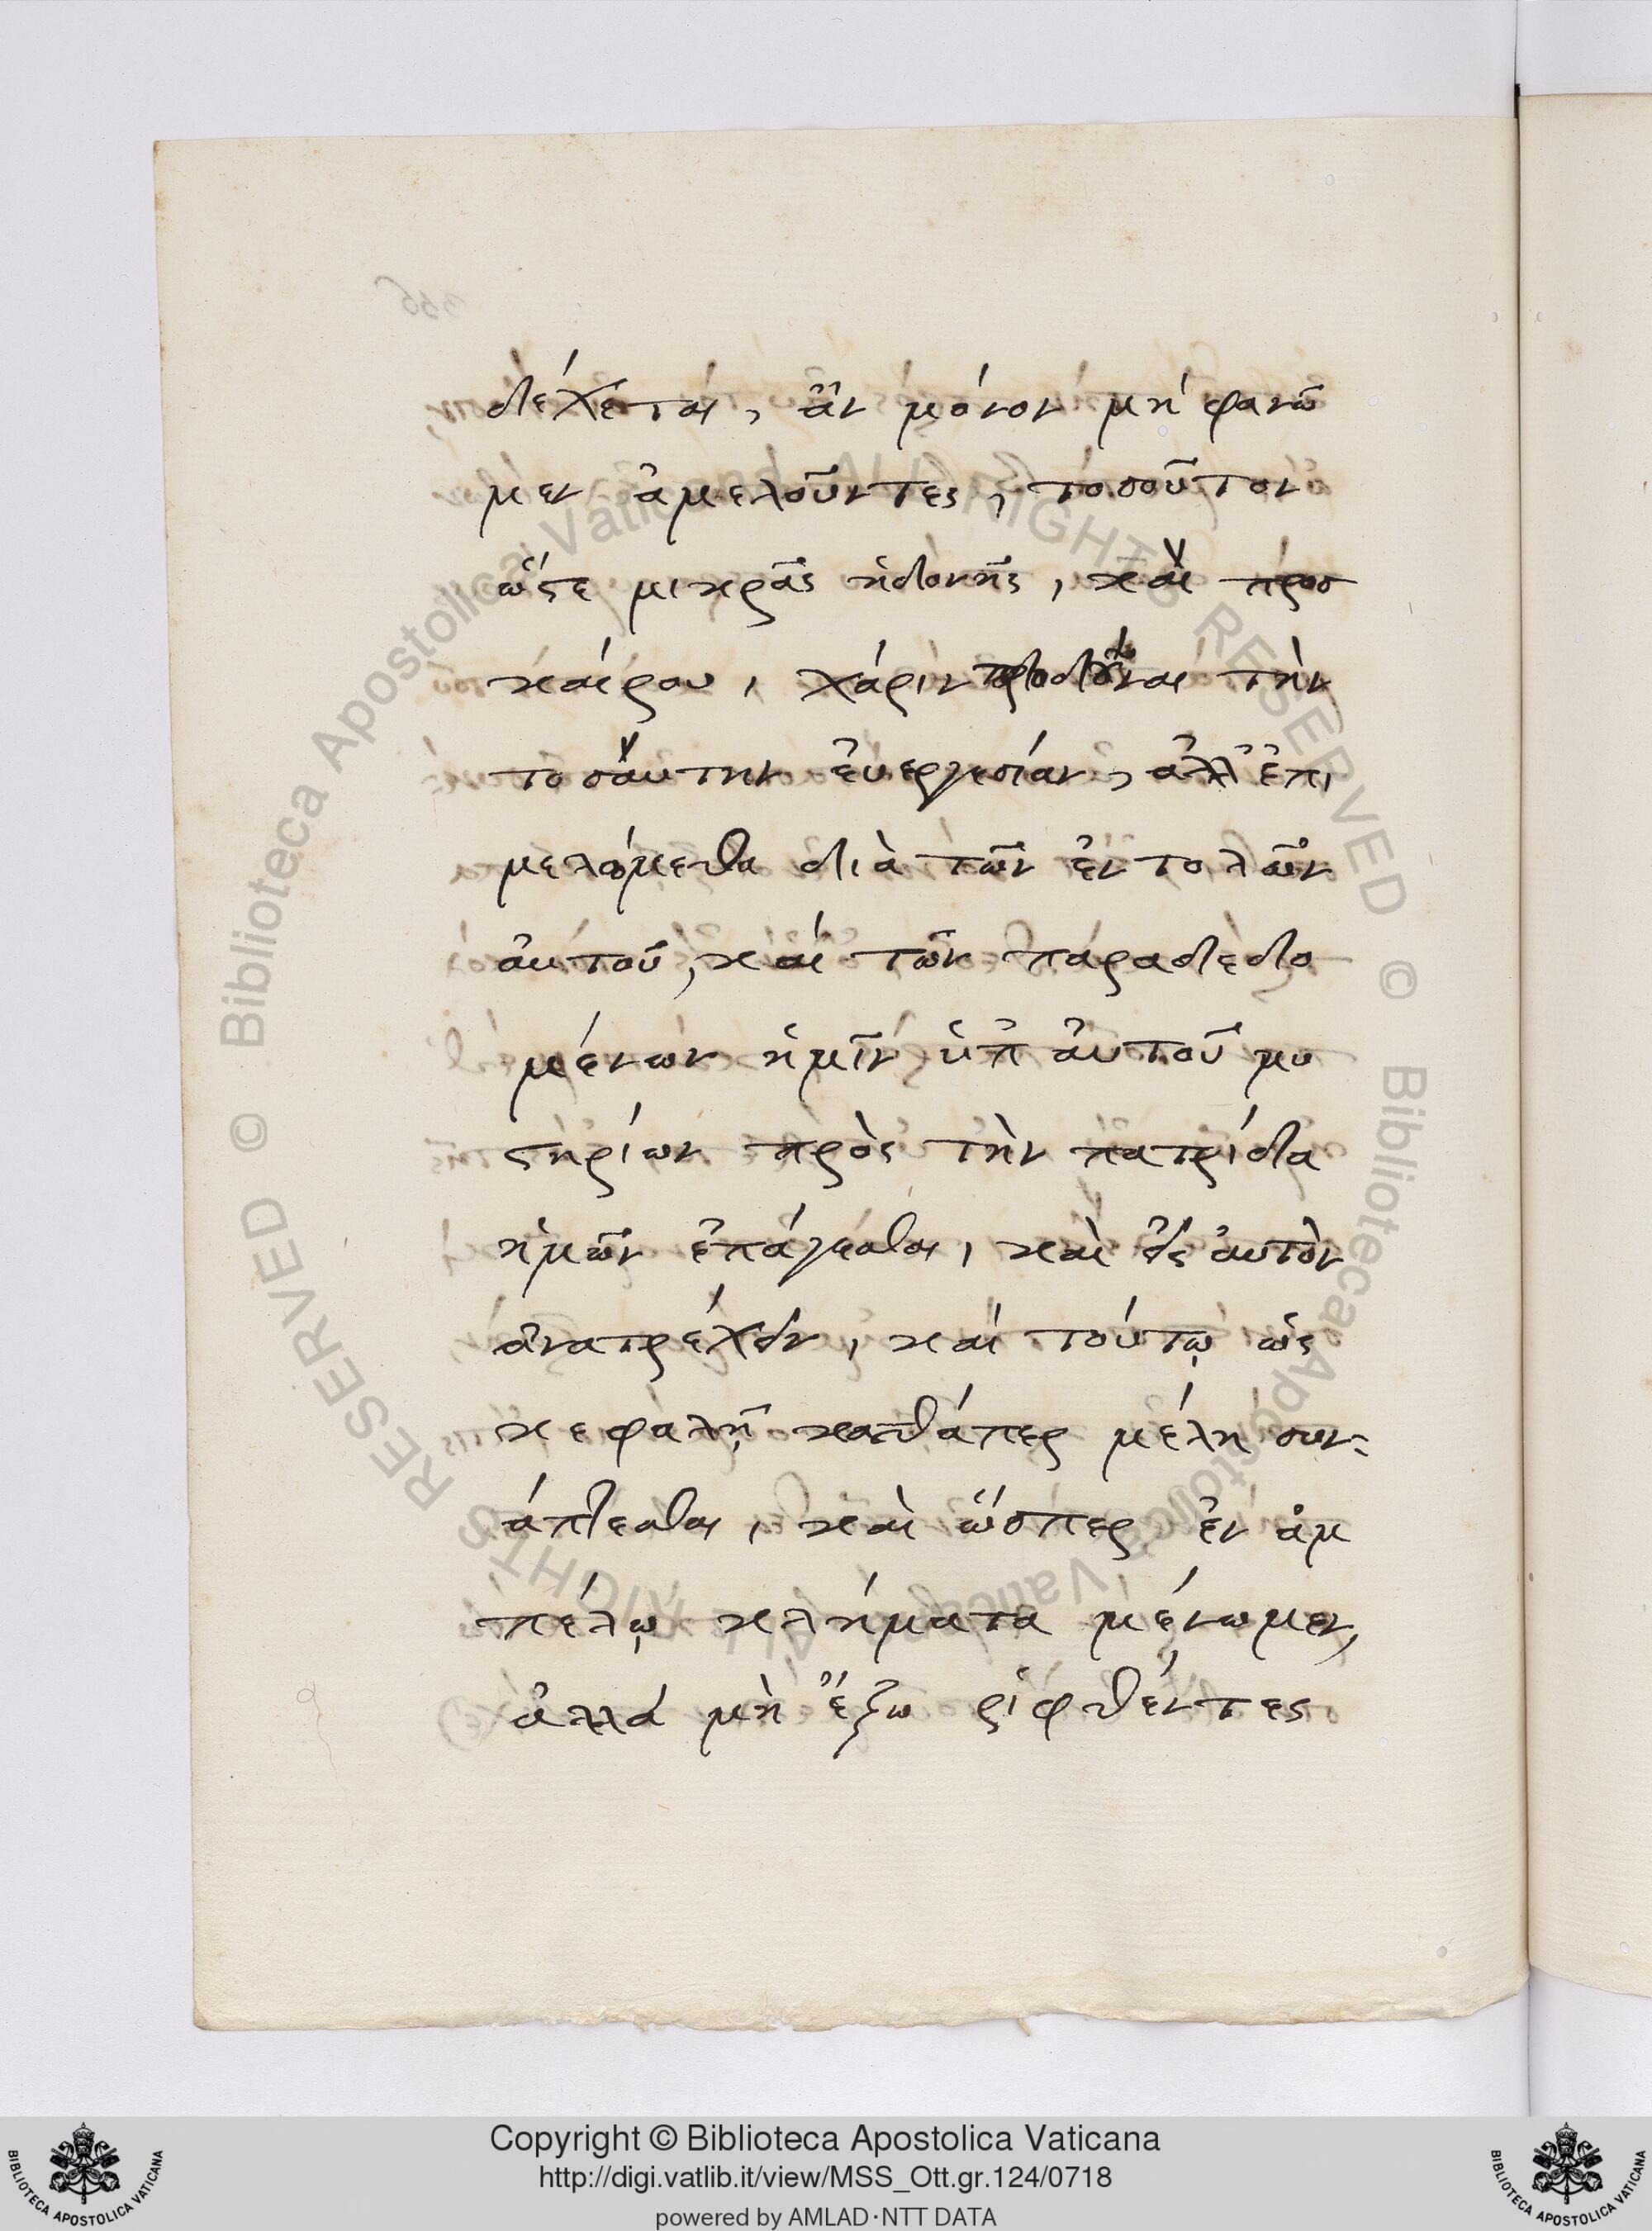 δέχεται, ἂν μόνον μή φανῶ
μεν ἀμελοῦντες, τοσοῦτον
ὥστε μικρᾶς ἡδονῆς, καὶ προσ
καίρου, χάριν προδοῦναι τὴν
τοσαύτην ἐυεργεσίαν, ἀλλ' ἐπι
μελόμεθα διὰ τῶν ἐντολῶν
ἀυτοῦ, καί τῶν παραδεδο
μένων ἡμῖν ὑπ' ἀυτοῦ μυ
στηρίων πρὸς τὴν πατρίδα
ἡμῶν ἐπάγεσθαι, καὶ εἰς ἀυτὸν
ἀνατρέχειν, καί τούτῳ ὡς
κεφαλῇ καθάπερ μέλη συν-
άπτεσθαι, καὶ ὥσπερ ἐν ἀμ
πέλῳ κλήματα μένωμεν,
ἀλλά μὴ ἔξω ῥιφθέντες
Copyright © Biblioteca Apostolica Vaticana
http://digi.vatlib.it/view/MSS_Ott.gr.124/0718
powered by AMLAD·NTT DATA
BIBLIOTECA APOSTOLICA VATICANA
BIBLIOTECA APOSTOLICA VATICANA
© Biblioteca Apostolica Vaticana ALL RIGHTS RESERVED
© Biblioteca Apostolica Vaticana ALL RIGHTS RESERVED